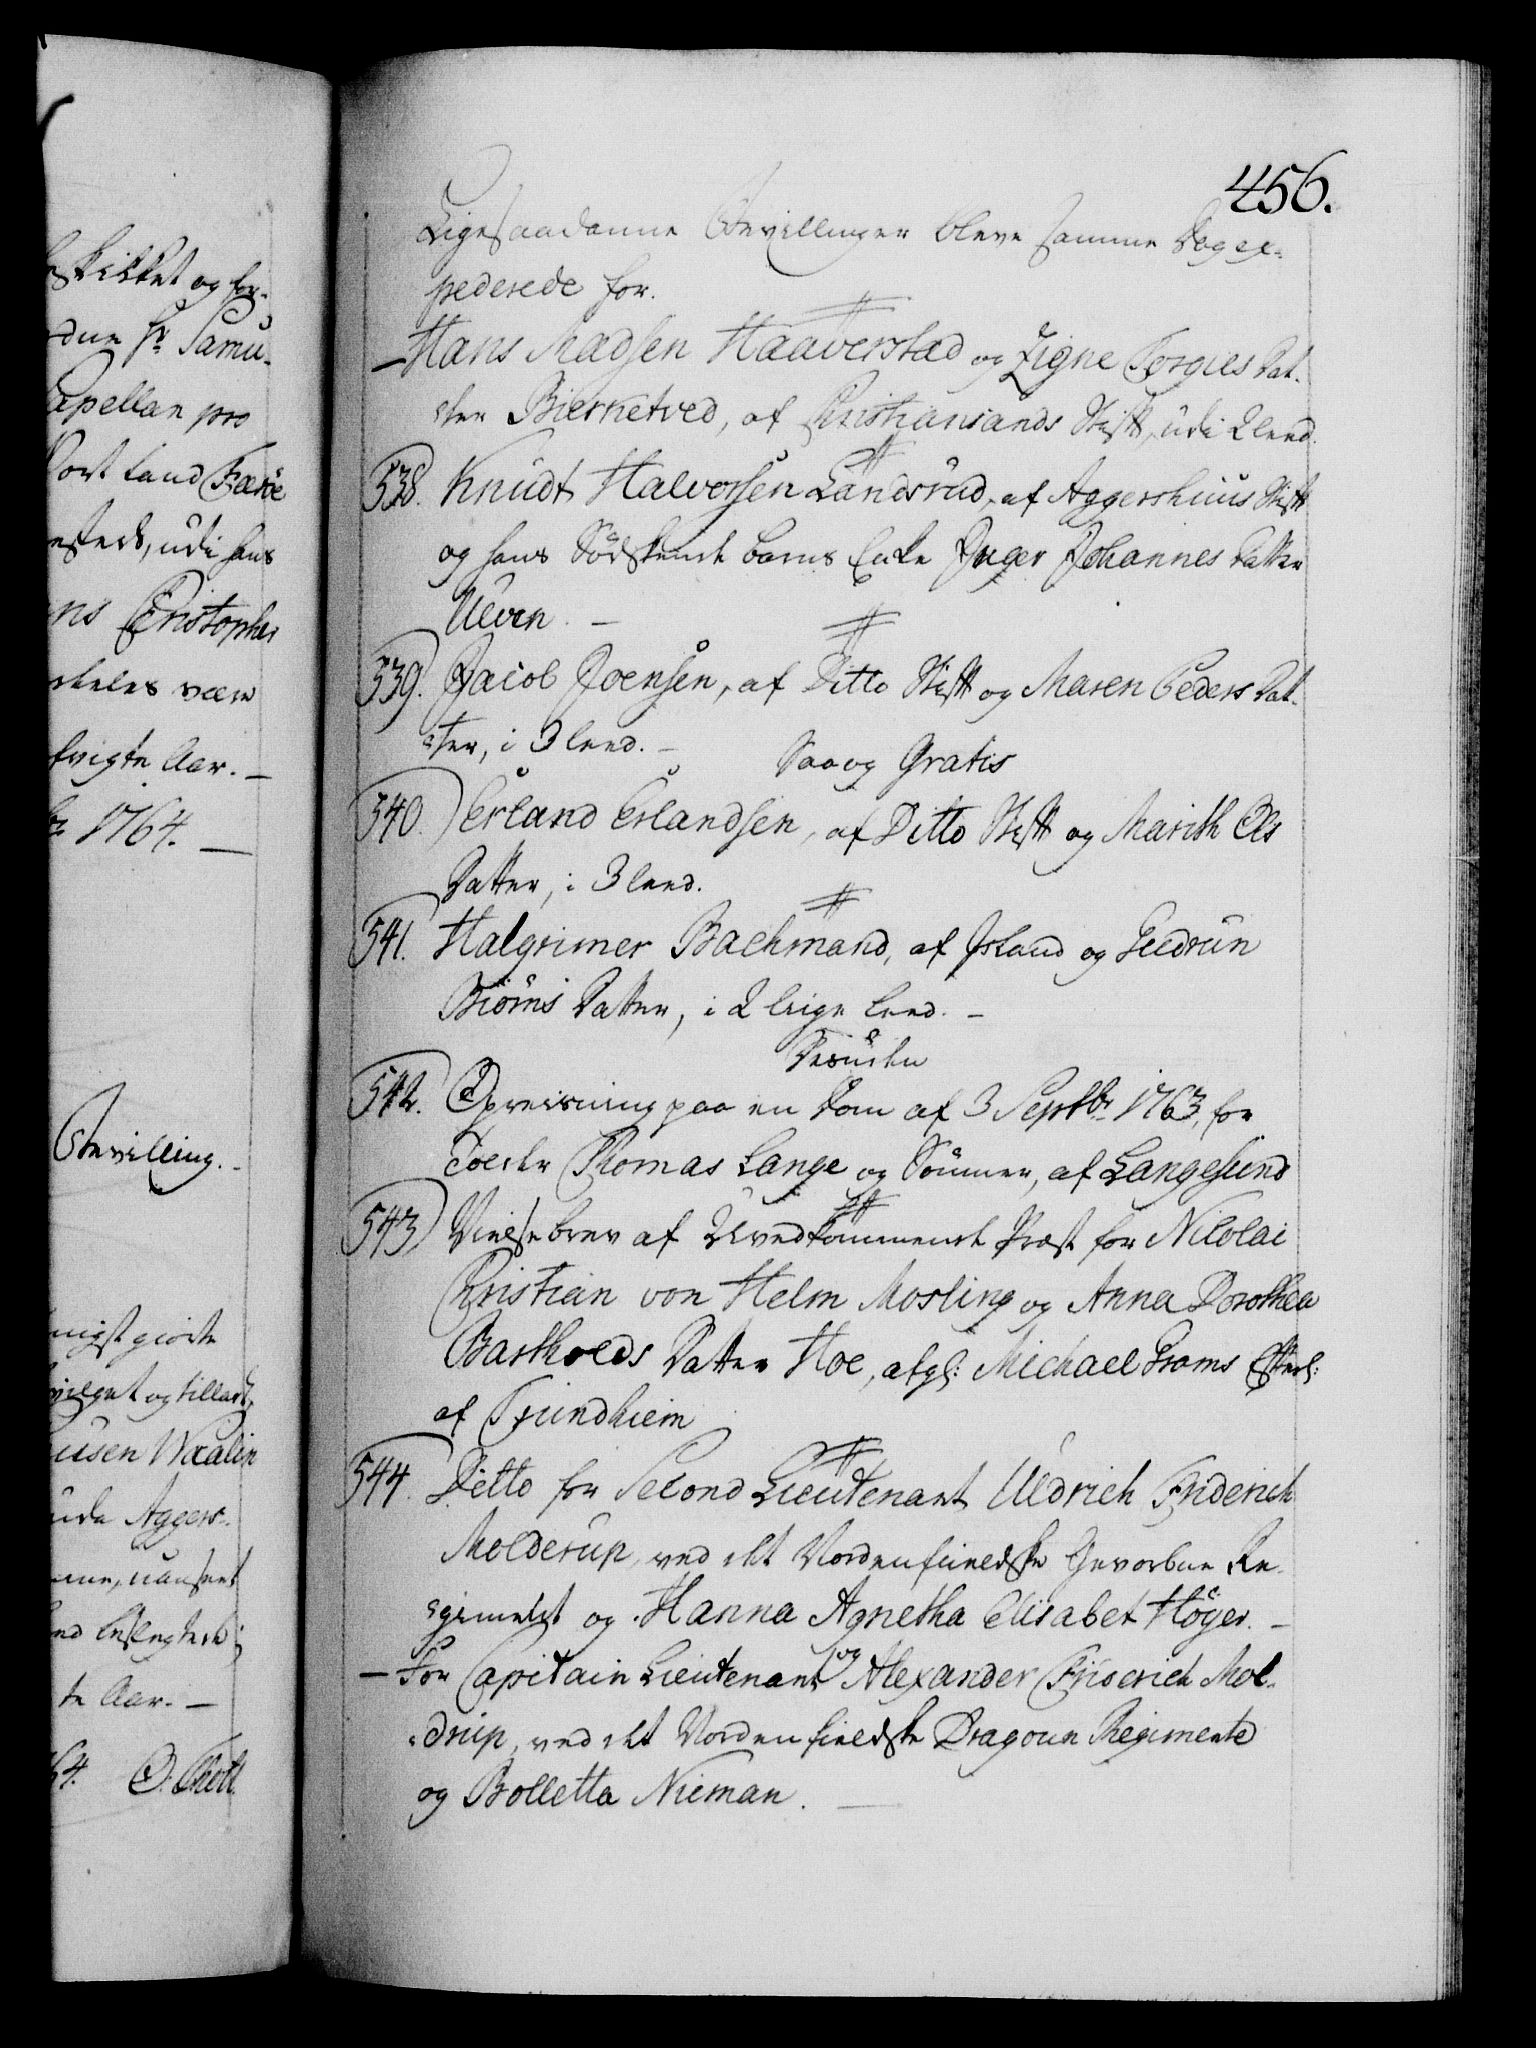 456.
Ligesaadanne Bevillinger bleve samme Dag ex-
pederede for.
Hans Madsen Haaverstad og Zigne Torgies Dat-
ter Bierketved, af Christiansands Stift, udi 2 leed.
538. Knudt Halvorsen Landsrud, af Aggershuus Stift
og hans Södskende barns Enke Inger Johannes Datter
Ulven. –
539. Jacob Joensen, af Ditto Stift og Maren Peders Dat-
ter, i 3 leed. –
Saa og Gratis
540. Erland Erlandsen, af Ditto Stift og Marith Ols
Datter, i 3 leed.
541. Halgrimer Bachmand, af Island og Gudrun
Biörns Datter, i 2 lige leed. –
Desuden
542. Opreisning paa en Dom af 3 Septbr. 1763, for
Tolder Thomas Lange og Sönner, af Langesund
543. Vielsebrev af Uvedkommende Præst for Nicolai
Christian von Helm Mosling og Anna Dorothea
Bartholds Datter Hoe, afgl: Michael Froms Efterl:
af Trundhiem
544. Ditto for Second Lieutenant Uldrich Friderich
Molderup, ved det Nordenfieldske Gevorbne Re-
gimendt og Hanna Agnetha Elisabet Höyer. –
– For Capitain Lieutenant og Alexander Friderich Mol-
drup, ved det Nordenfieldske Dragoun Regimente
og Bolletta Nieman. –
skikket og for-
Hr. Samu-
Capellan pro
Vort Land Færöe
udi hans
Christopher
være
Aar. –
1764. –
Bevilling. –
giorde
og tillade,
Aggers-
te Aar. –
64. O. Thott.